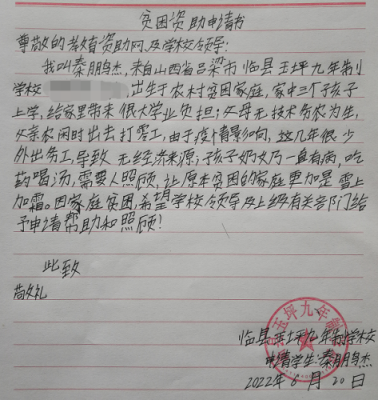 贫困资助申请书
尊敬的教育资助网及学校领导:
我叫秦朋杰,来自山西省吕梁市临县玉坪九年制
学校 出生于农村贫困家庭,家中三个孩子
上学,给家里带来很大学业负担;父母无技术务农为生,
父亲农闲时出去打零工,由于疫情影响,这几年很少
外出务工,导致无经济来源;孩子奶奶一直有病,吃
药喝汤,需要人照顾,让原本贫困的家庭更加是雪上
加霜。因家庭贫困,希望学校领导及上级有关部门给
予申请帮助和照顾!
此致
敬礼
临县玉坪九年制学校
申请学生:秦朋杰
2022年6月20日